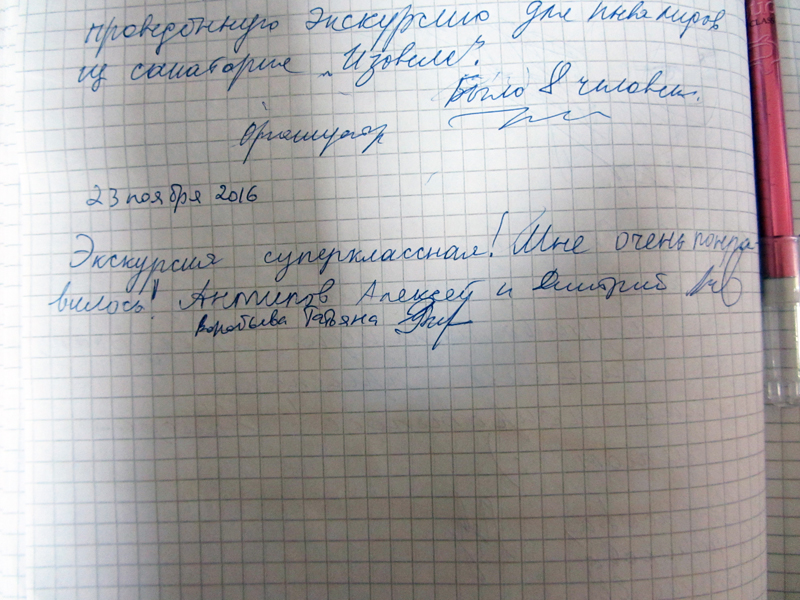 проведённую экскурсию для инвалидов
из санатория „Изовела".
Было 8 человек.
Организатор
23 ноября 2016
Экскурсия суперклассная! Мне очень понра-
вилось! Антипов Алексей и Дмитрий
Воробьева Татьяна